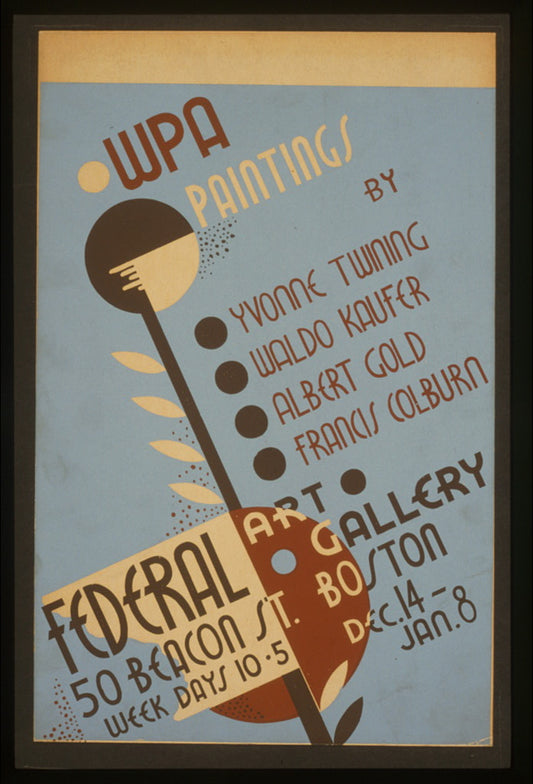 WPA
PAINTINGS
BY
YVONNE TWINING
WALDO KAUFER
ALBERT GOLD
FRANCIS COLBURN
FEDERAL ART GALLERY
50 BEACON ST. BOSTON
WEEK DAYS 10·5 DEC. 14 –
JAN. 8